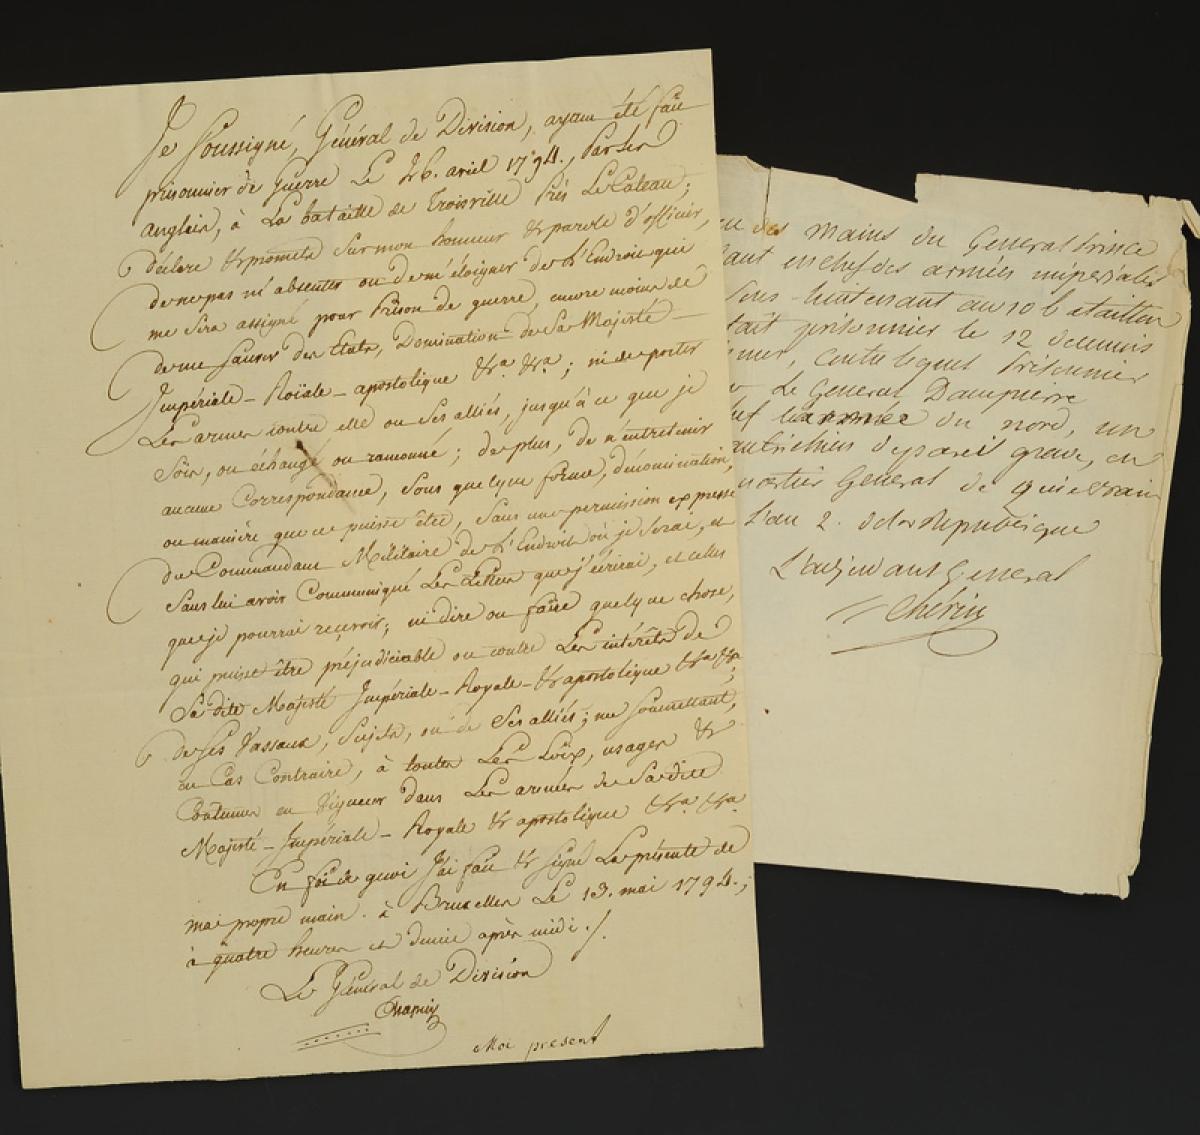 Je Soussigné, Général de Division, ayant été fait
prisonnier de Guerre Le 26. avril 1794., Par Les
Anglais, à La bataille de Troisville Près Le Cateau;
Déclare & promets Sur mon honneur & parole d'officier,
de ne pas m'absenter ou de m'éloigner de L'Endroit qui
me Sera assigné pour Prison de guerre, encore moins de
de me Sauver des Etats, Domination de Sa Majesté
Impériale - Roïale - apostolique &ra. &ra; ni de porter
Les armes contre elle ou Ses alliés, jusqu'à ce que je
Sois, ou échangé ou ranconné; de plus, de n'entretenir
aucune Correspondance, Sous quelque forme, dénomination,
ou manière que ce puisse être, Sans une permission expresse
du Commandant Militaire de L'Endroit où je Serai, et
Sans lui avoir Communiqué Les Lettres que j'écrirai, et celles
que je pourrai reçevoir; ni dire ou faire quelque chose,
qui puisse être préjudiciable ou contre Les intérêts de
Sa dite Majesté Impériale - Royale - & apostolique &ra &ra;
de Ses Vassaux, Sujets, ou de Ses alliés; me Soumettant,
au Cas Contraire, à toutes Les Loix, usages &
Coutumes en Vigueur dans Les armées de Sa dite
Majesté - Impériale - Royale & apostolique &ra. &ra.
En foi de quoi J'ai fait & Signé La présente de
ma propre main. à Bruxelles Le 13. mai 1794.,
à quatre heures et demie après midi ./.
Le Général de Division
Chapuis
Moi présent
des mains du General Prince
en chef des armées imperiales
Sous-lieutenant au 10 bataillon
prisonnier le 12 du mois
contre lequel prisonnier
Le General Dampierre
l'armée du nord, un
autrichien de pareil grade, au
quartier General de Quievrain
L'an 2. de la Republique
L'adjudant General
Chérin